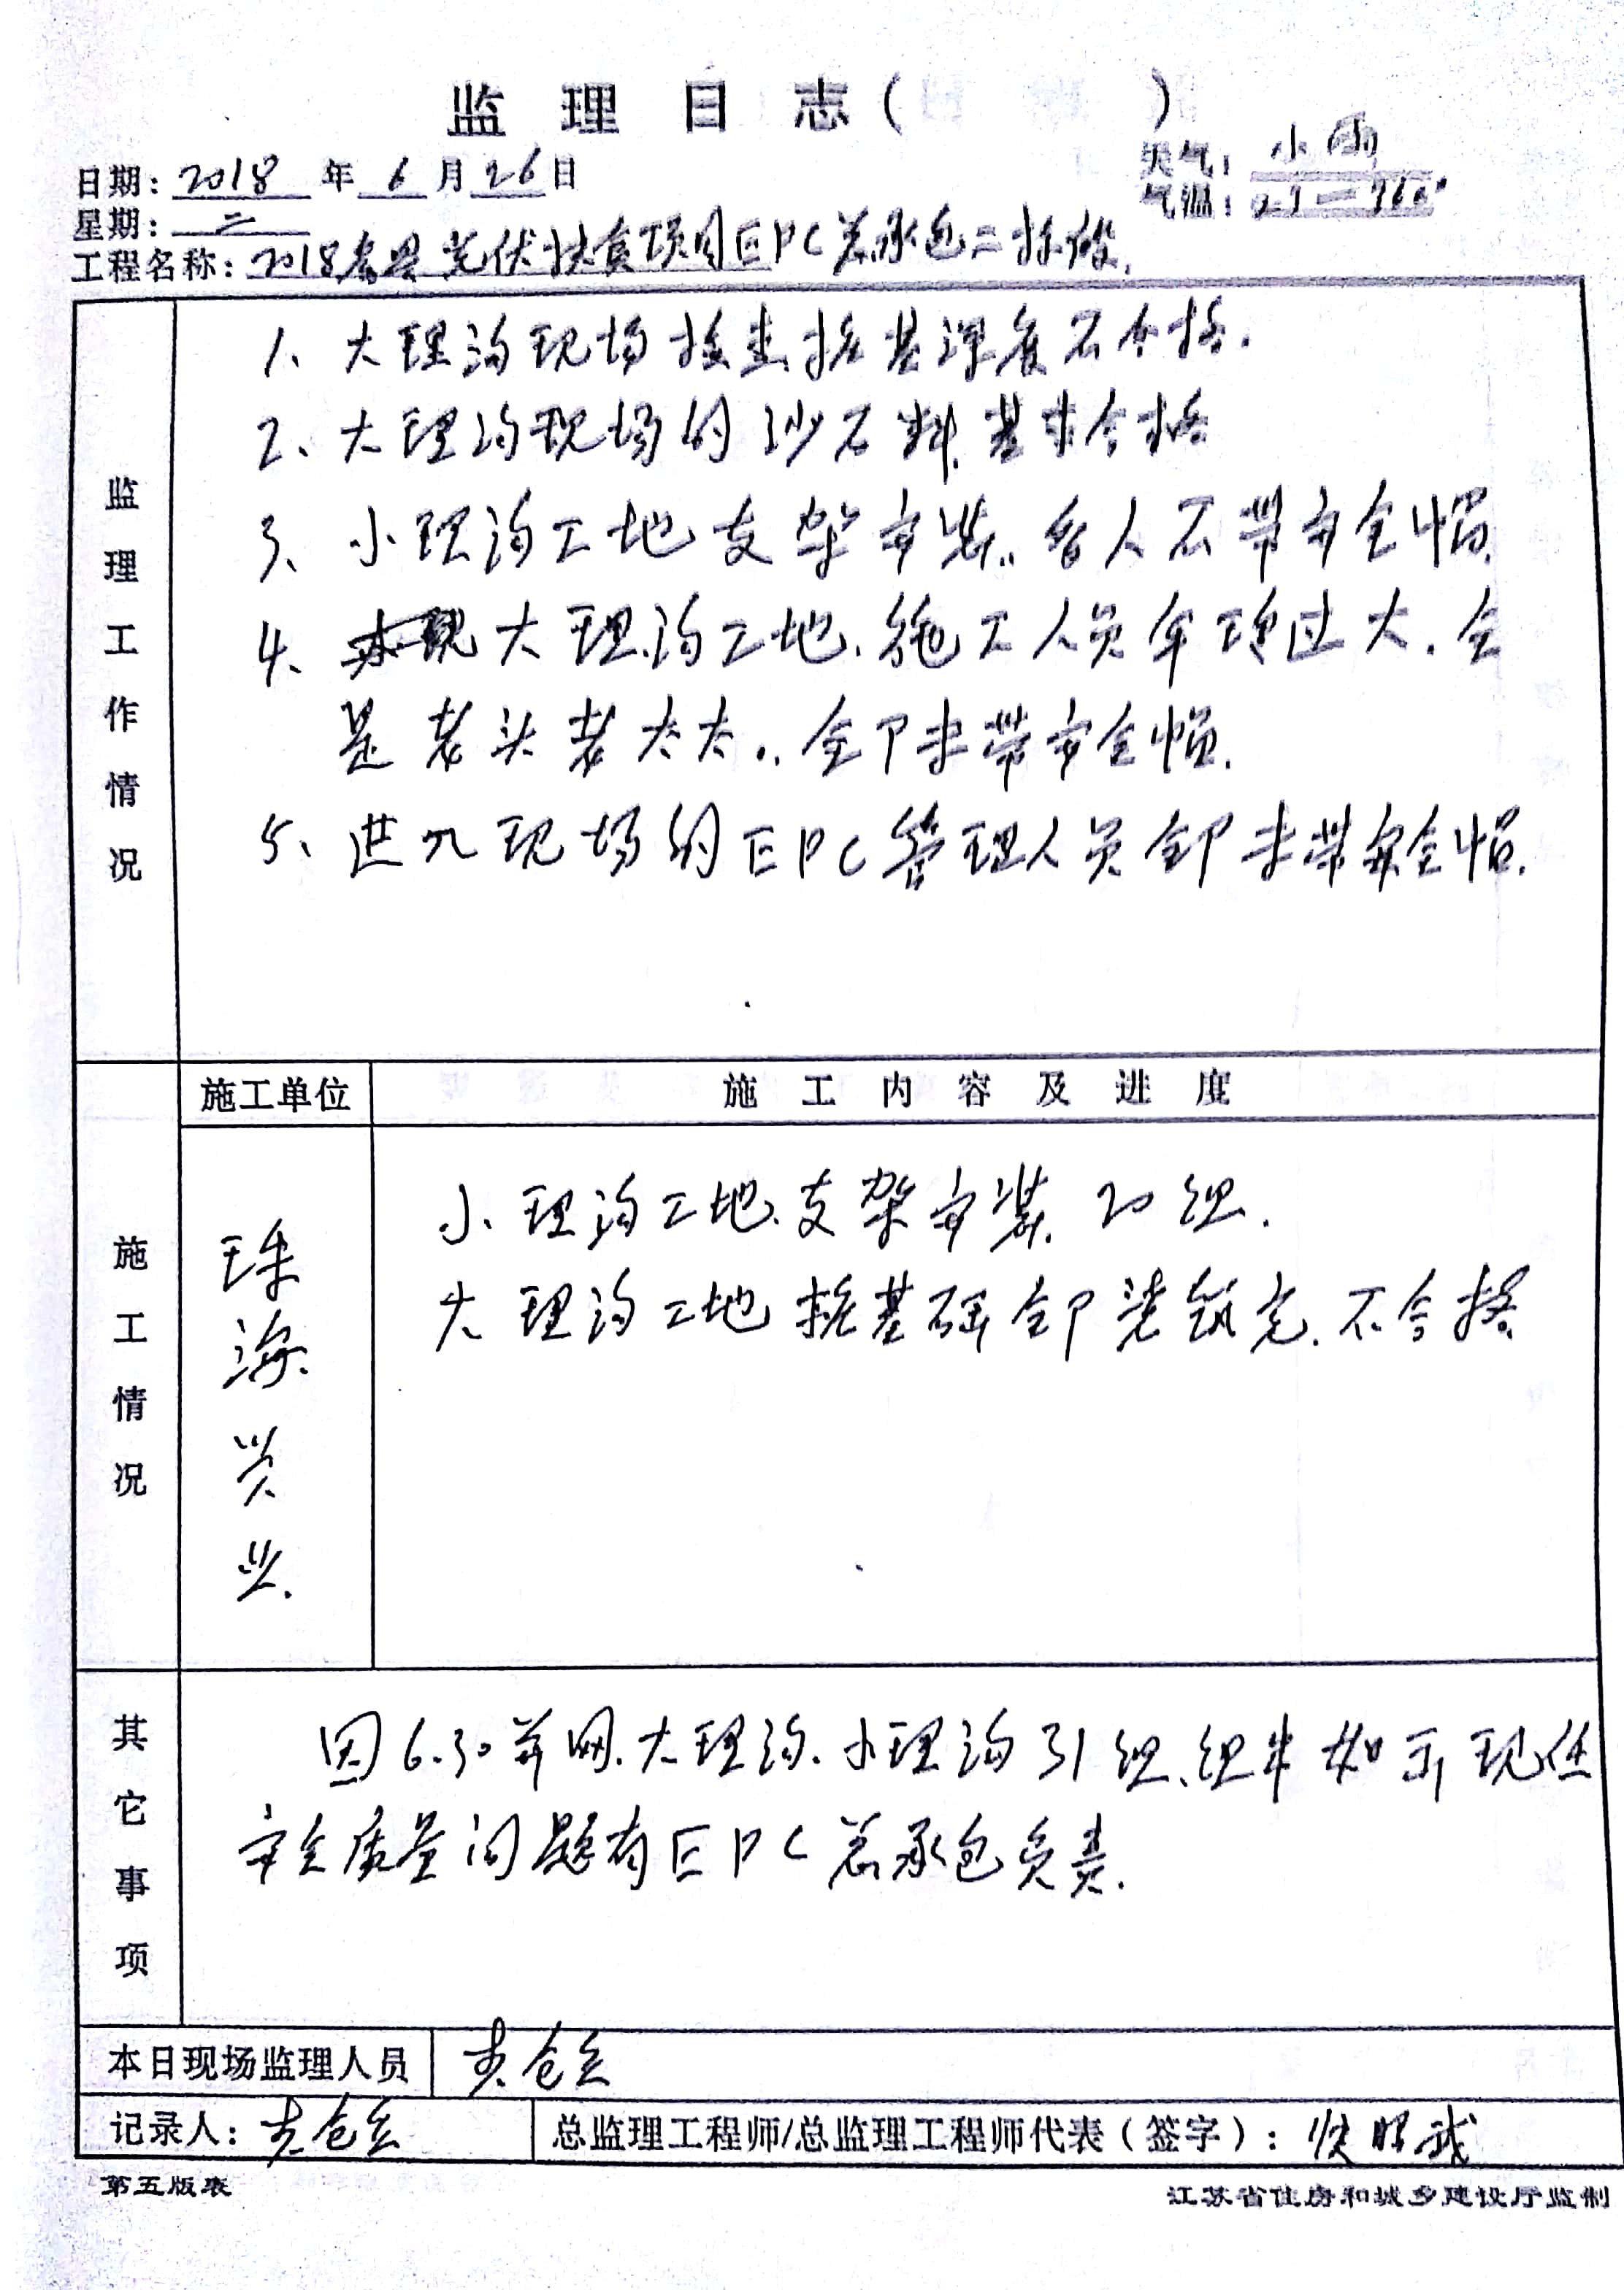 监理日志( )
日期:2018年6月26日
天气:小雨
星期:二
气温:
工程名称:2018 县光伏扶贫项目EPC总承包二标段.
监理工作情况
1、大理沟现场检查桩基深度不合格.
2、大理沟现场的沙石料基本合格
3、小理沟工地支架安装..各人不带安全帽.
4、大理沟工地.施工人员年龄过大.全
是老头老太太..全部未带安全帽.
5、进入现场的EPC管理人员全部未带安全帽.
施工单位
施工内容及进度
施工情况
珠海兴业.
小理沟工地支架安装20组.
大理沟工地桩基础全部浇筑完.不合格
其它事项
因6.30并网.大理沟.小理沟31组.组件如出现任
安全质量问题有EPC总承包负责.
本日现场监理人员
记录人:
总监理工程师/总监理工程师代表(签字):
第五版表
江苏省住房和城乡建设厅监制